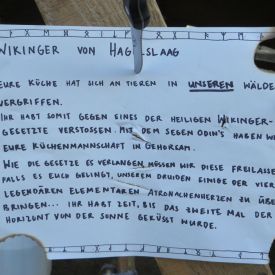 WIKINGER VON HAGELSLAAG
EURE KÜCHE HAT SICH AN TIEREN IN UNSEREN WÄLDE
VERGRIFFEN.
IHR HABT SOMIT GEGEN EINES DER HEILIGEN WIKINGER-
GESETZTE VERSTOSSEN. MIT DEM SEGEN ODIN'S HABEN WI
EURE KÜCHENMANNSCHAFT IN GEHORSAM.
WIE DIE GESETZE ES VERLANGEN MÜSSEN WIR DIESE FREILASSE
FALLS ES EUCH GELINGT, UNSEREM DRUIDEN EINIGE DER VIER
LEGENDÄREN ELEMENTAREN ATRONACHENHERZEN ZU ÜBE
BRINGEN... IHR HABT ZEIT, BIS DAS ZWEITE MAL DER
HORIZONT VON DER SONNE GEKÜSST WURDE.